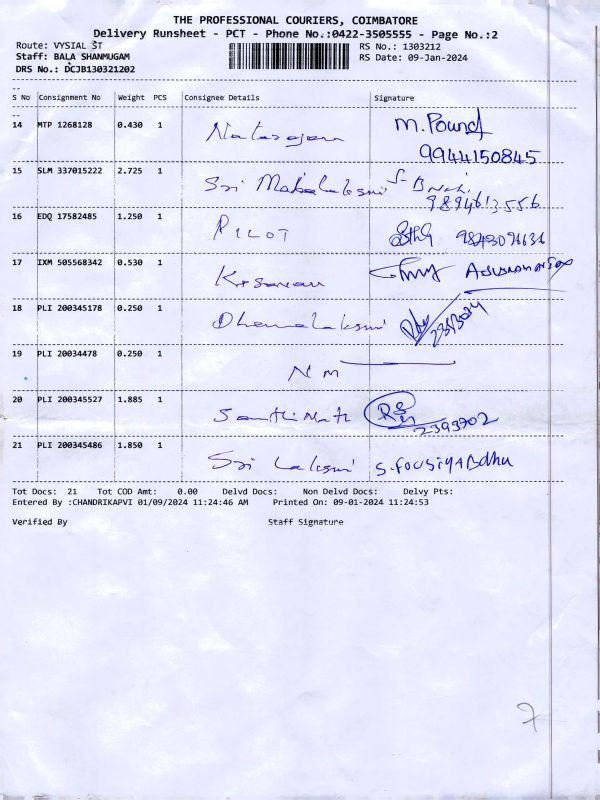 THE PROFESSIONAL COURIERS, COIMBATORE
Delivery Runsheet - PCT - Phone No.:0422-3505555 - Page No.:2
Route: VYSIAL ST
RS No.: 1303212
Staff: BALA SHANMUGAM
RS Date: 09-Jan-2024
DRS No.: DCJB130321202
S No Consignment No Weight PCS Consignee Details Signature
14 MTP 1268128 0.430 1 Natarajan M. Pound
9944150845
15 SLM 337015222 2.725 1 Sri Mahalaksmi
9894613556
16 EDQ 17582485 1.250 1 PILOT
17 IXM 505568342 0.530 1
18 PLI 200345178 0.250 1 Dhanalaksmi
19 PLI 20034478 0.250 1 NM
20 PLI 200345527 1.885 1
2393702
21 PLI 200345486 1.850 1 Sri Laksmi S. Fousiya Bdhu
Tot Docs: 21 Tot COD Amt: 0.00 Delvd Docs: Non Delvd Docs: Delvy Pts:
Entered By :CHANDRIKAPVI 01/09/2024 11:24:46 AM Printed On: 09-01-2024 11:24:53
Verified By Staff Signature
7